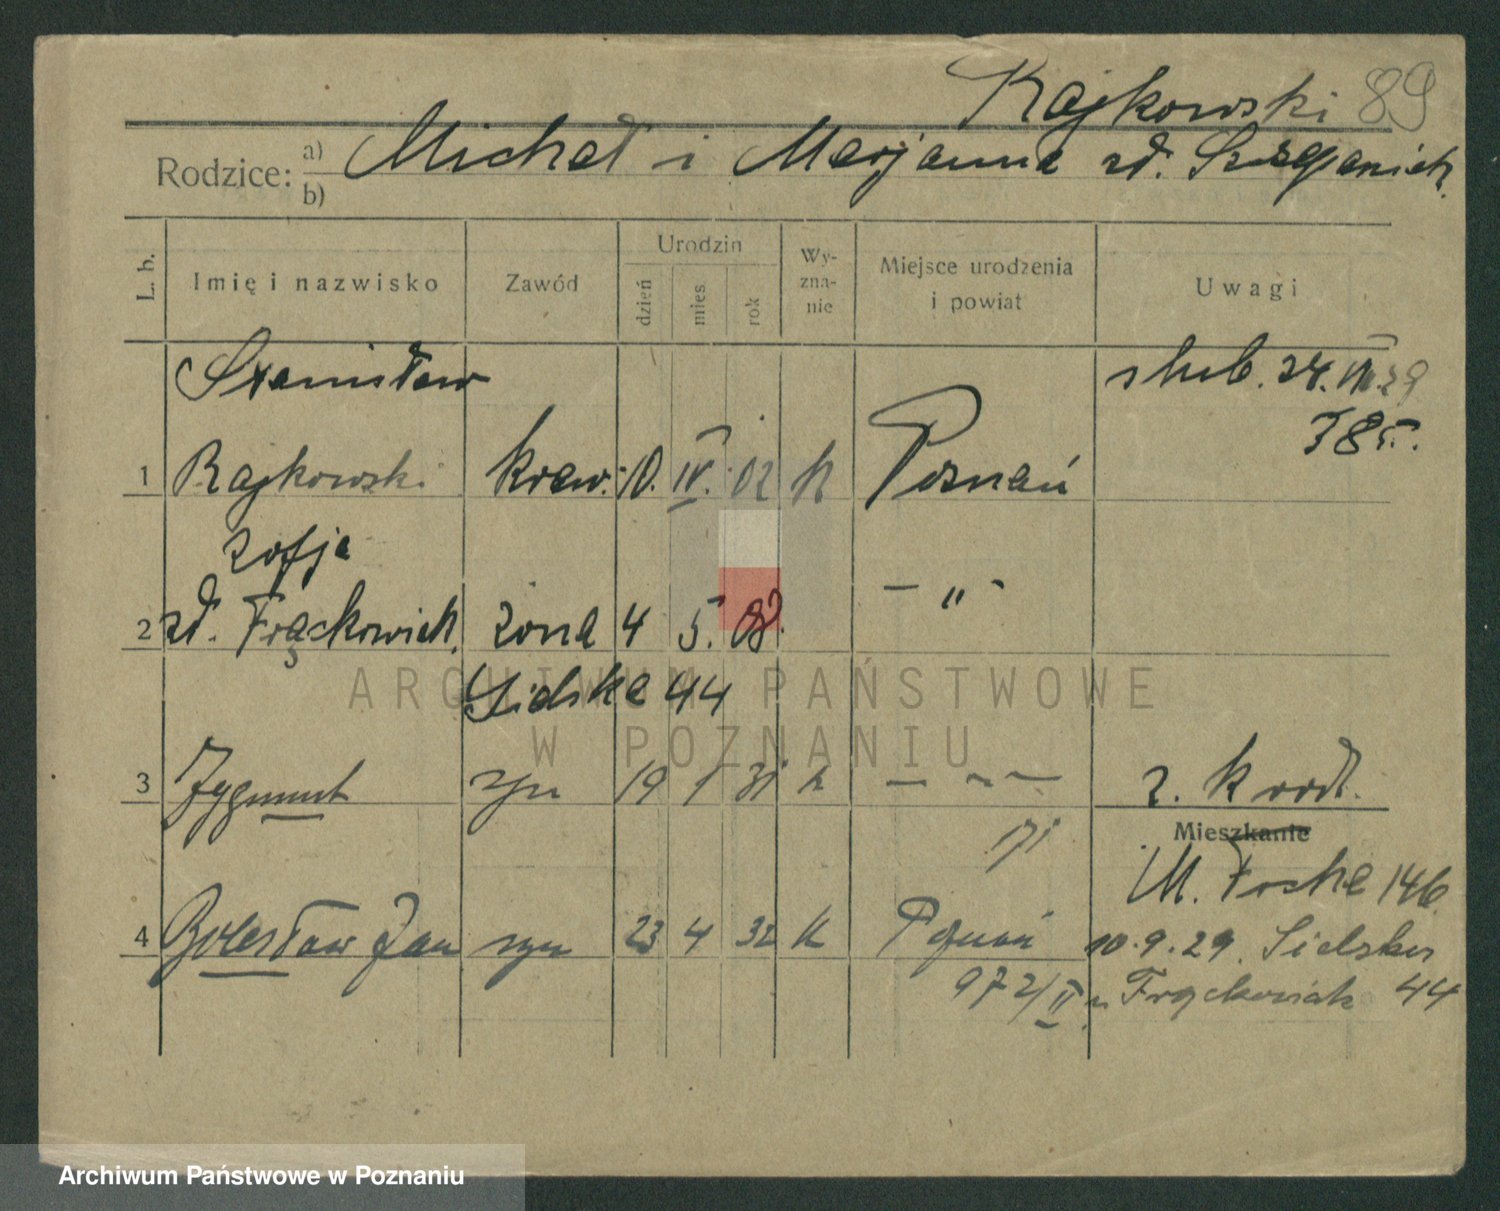 Rajkowski 89
Rodzice: a) Michał i Marjanna zd. Szczepaniak
b)
L. b. Imię i nazwisko Zawód Urodzin dzień mies rok Wy-zna-nie Miejsce urodzenia i powiat Uwagi
Stanisław ślub. 24. VIII. 29
785.
1 Rajkowski kraw. 10. IV. 02 k Poznań
Zofja
2 zd. Frąckowiak żona 4 5. 08. — " —
Sielska 44
3 Zygmunt syn 19 1 31 k — — —
Mieszkanie
171
4 Bolesław Jan syn 23 4 32 k Poznań
M. Focha 146
10.9.29. Sielska
972/II u Frąckowiak 44
ARCHIWUM PAŃSTWOWE
W POZNANIU
Archiwum Państwowe w Poznaniu